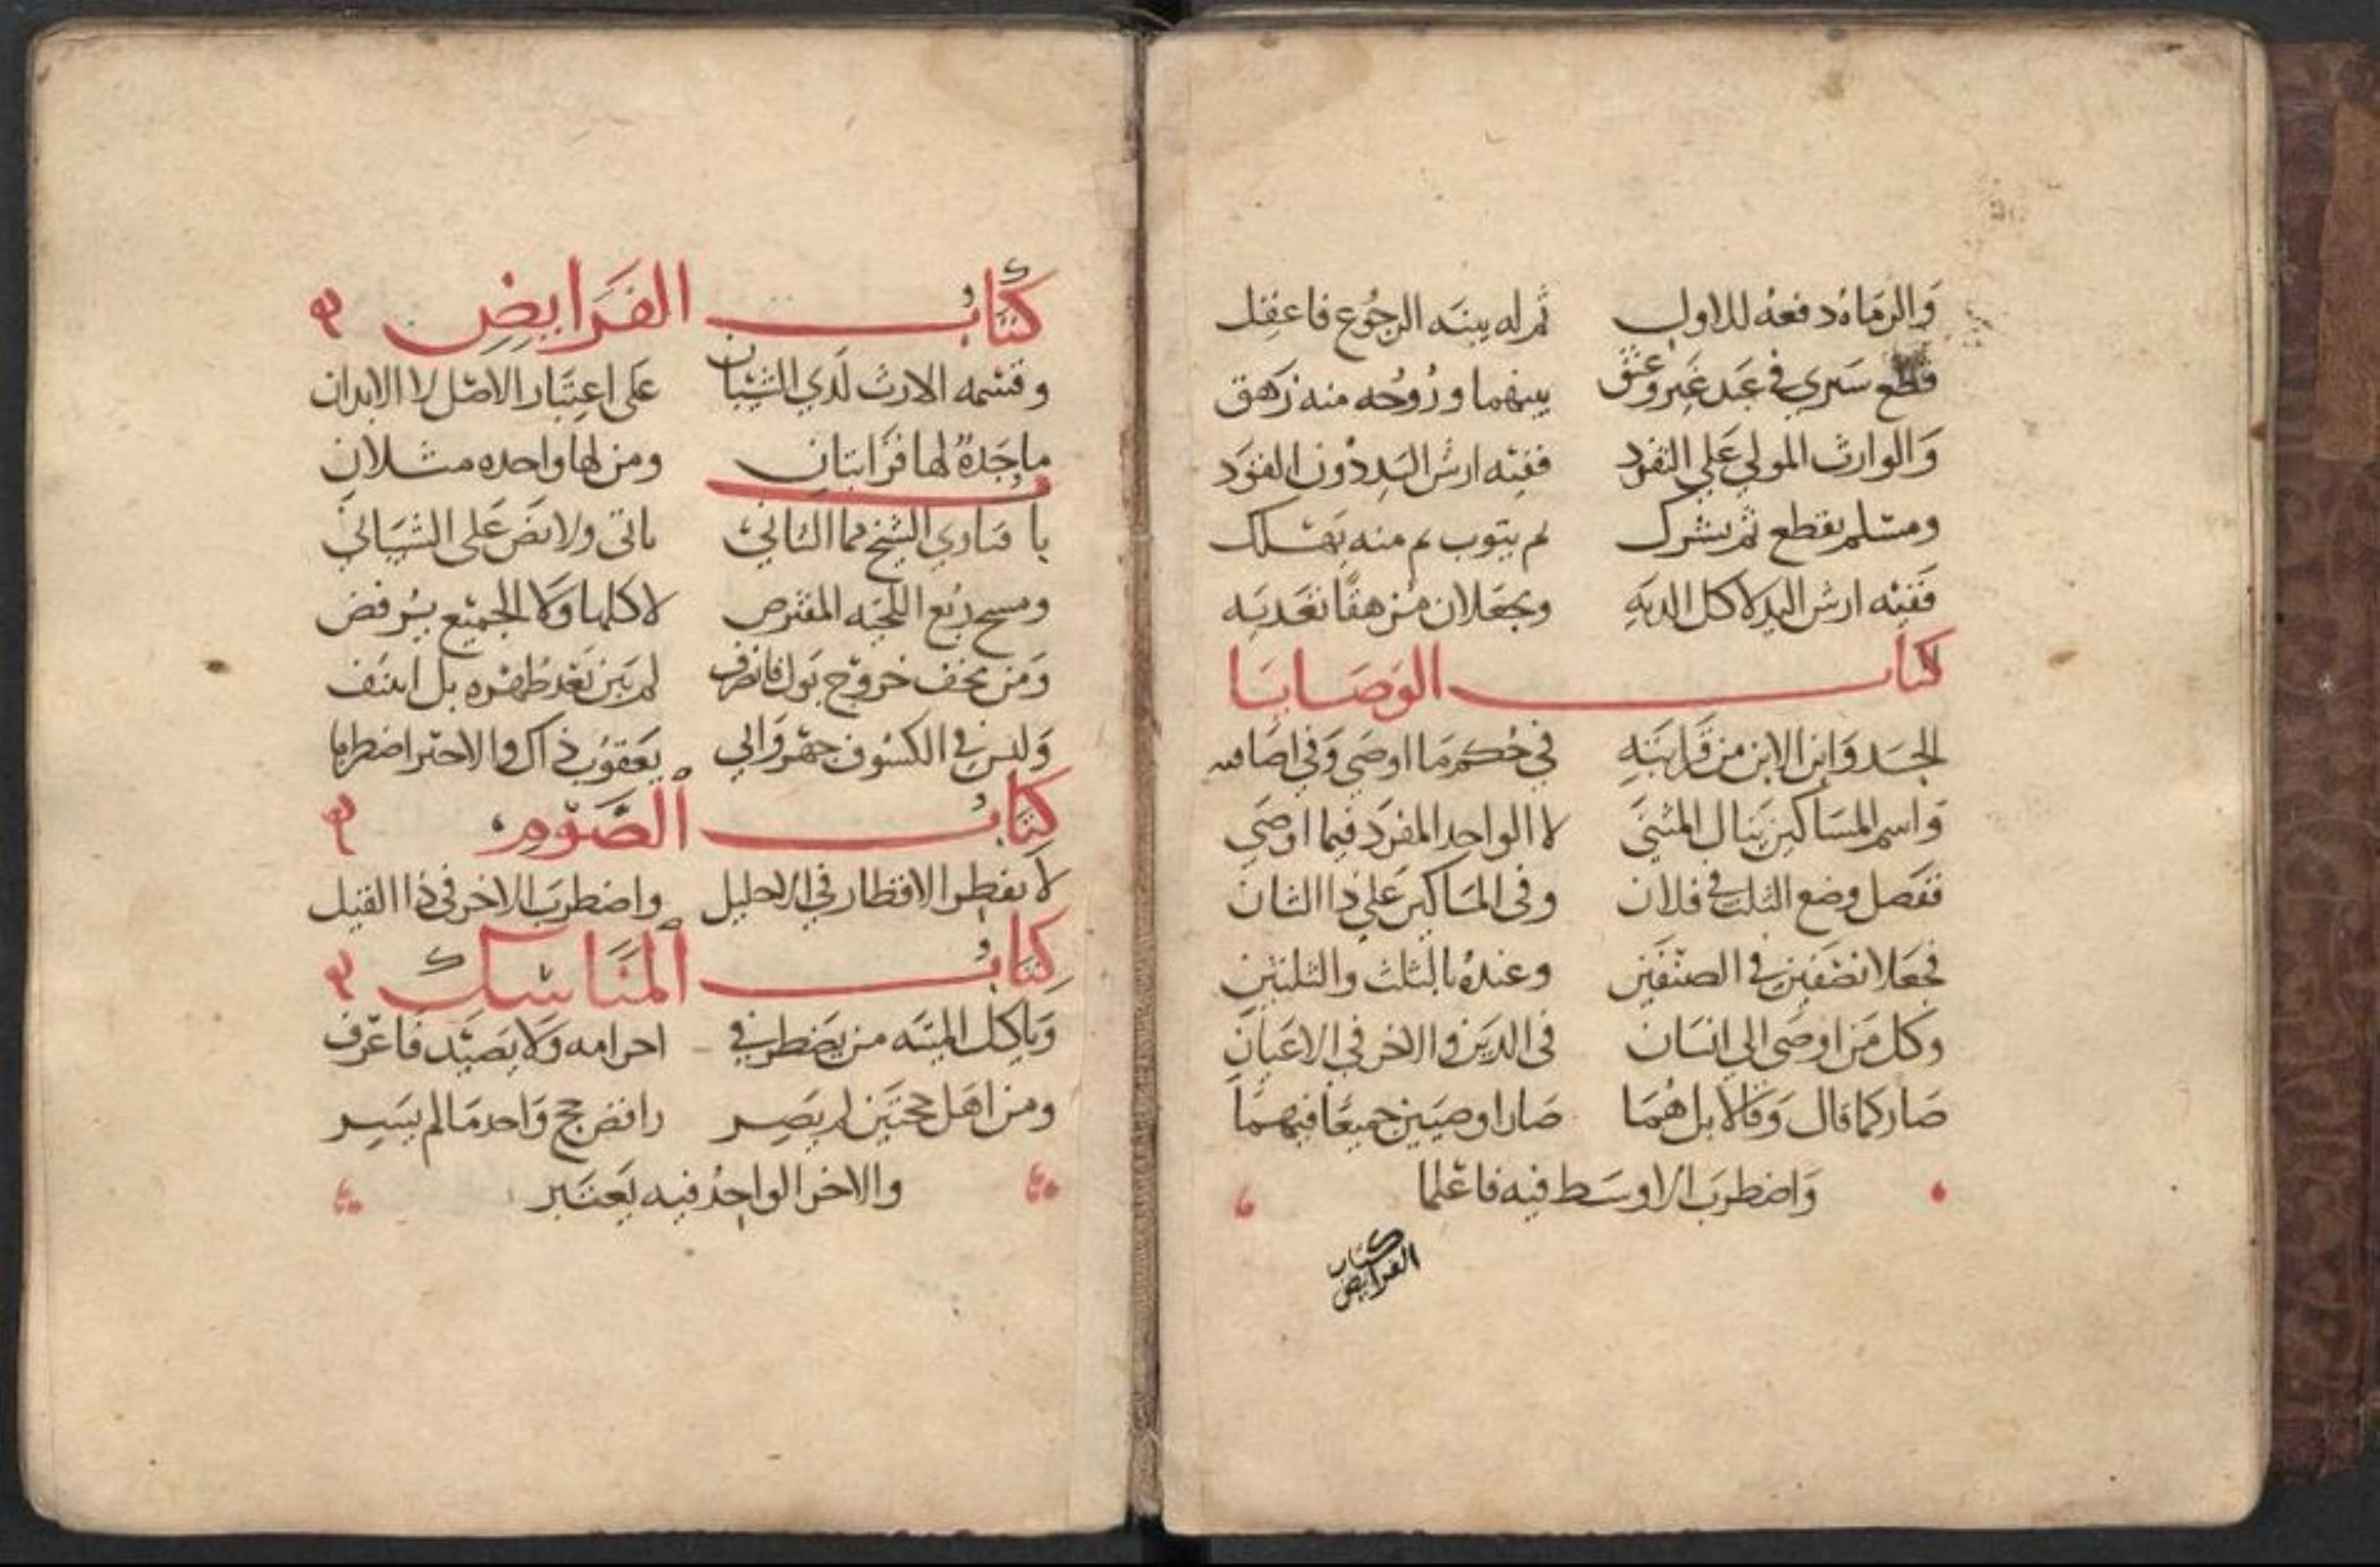 والزماه دفعه للاول ثم له بينه الرجوع فاعقل
قطع سرى في عبد غير وعتق بينهما وروحه منه زهق
والوارث المولي علي التفرد ففيه ارش اليد دون القود
ومسلم يقطع ثم يشرك لم يتوب ثم منه يهلك
ففيه ارش اليد لا كل الديه ويجعلان من هفا نعديه
كتاب الوصايا
الجد وابن الابن من قرابته في حكم ما اوصى وفي
واسم المساكين ينال المثنى لا الواحد المفرد فيما اوصي
ففصل وضع الثلث في فلان وفي المساكين علي ذا الشان
فجعلا نصفين في الصنفين وعنده بالثلث والثلثين
وكل من اوصى الي انسان في الدين والاخر في الاعيان
صار كما قال وقالا بل هما صارا وصيين جميعا فيهما
واضطرب الاوسط فيه فاعلما
كتاب
الفرايض
كتاب الفرايض
وقسمه الارث لدي الشيبان على اعتبار الاصل لا الابدان
ما جدة لها قرابتان ومن لها واحده مثلان
با فتاوي الشيخ مما الثاني ياتى ولا نص على الشيباني
ومسح ربع اللحيه المفترض لا كلها ولا الجميع يرفض
ومن يخف خروج بول فانصرف لم يبن بعد طهره بل ايتنف
وليس في الكسوف جهر والي يعقوب ذاك والاخر اضطرابا
كتاب الصوم
لا يفطر الاقطار في الاحليل واضطرب الاخر في ذا القيل
كتاب المناسك
وياكل الميته من يضطر في احرامه ولا يصيد فاعرف
ومن اهل حجتين لم يصر رافض حج واحد ما لم يسر
والاخر الواحد فيه يعتبر